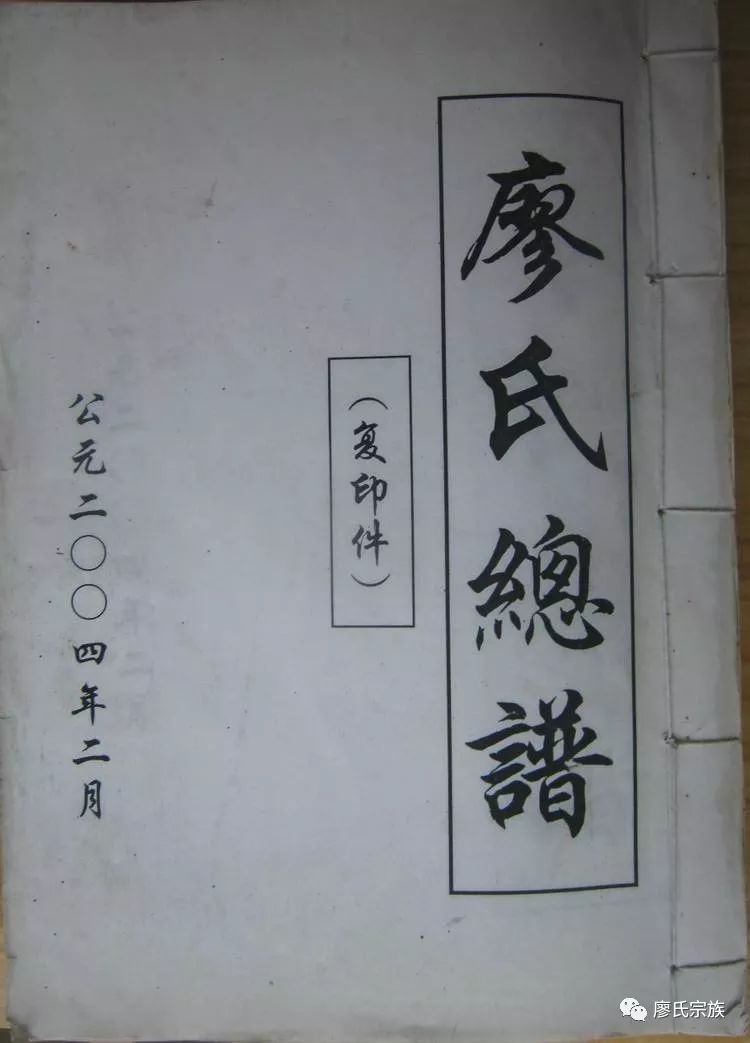 廖氏總譜
（复印件）
公元二〇〇四年二月
廖氏宗族